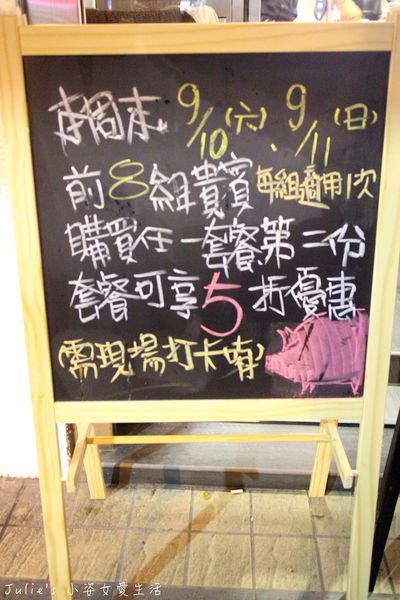 本周末 9/10(六)、9/11(日)
前8組貴賓 每組適用1次
購買任一套餐第二份
套餐可享5折優惠
(需現場打卡喲)
Julie's 小姿女愛生活